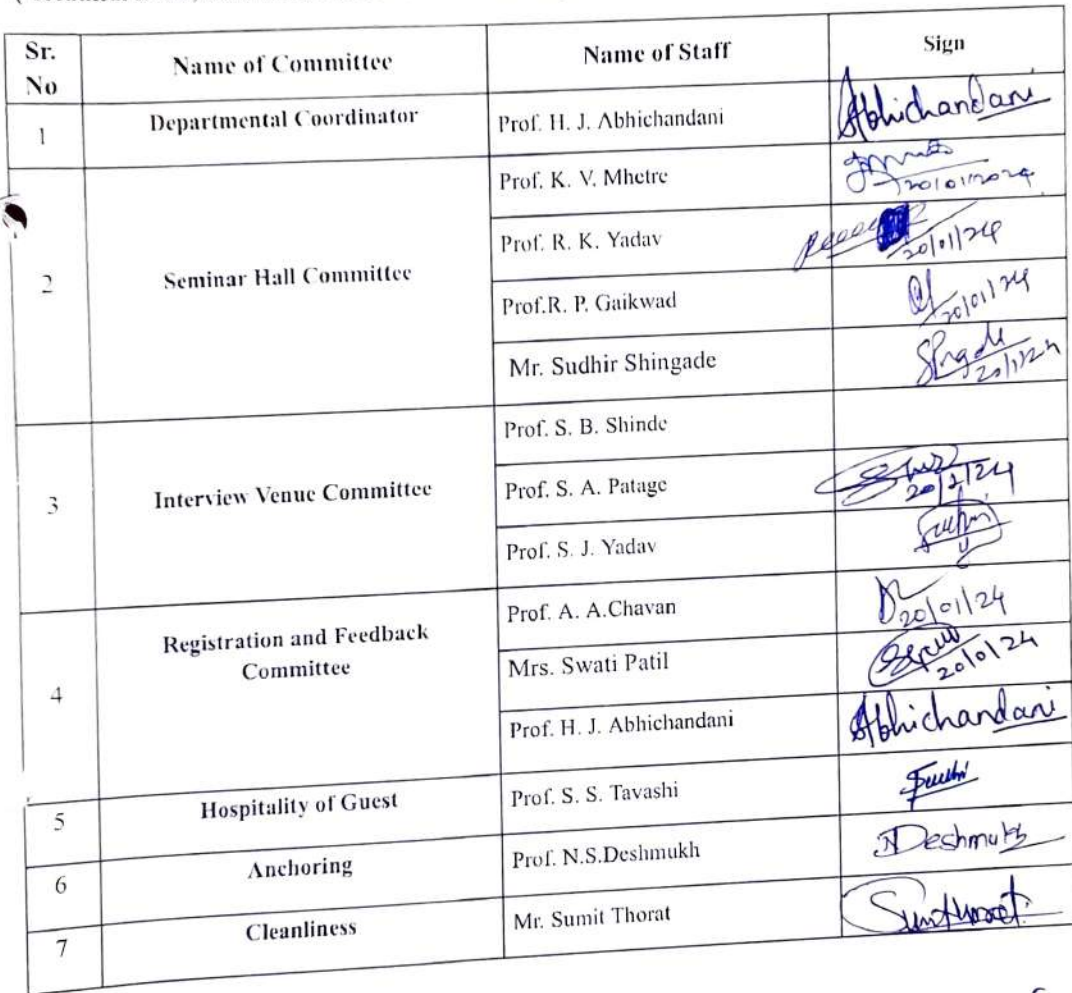 Sr.
No
Name of Committee
Name of Staff
Sign
1
Departmental Coordinator
Prof. H. J. Abhichandani
Abhichandani
2
Seminar Hall Committee
Prof. K. V. Mhetre
20/01/2024
Prof. R. K. Yadav
20/01/24
Prof.R. P. Gaikwad
20/01/24
Mr. Sudhir Shingade
20/1/24
3
Interview Venue Committee
Prof. S. B. Shinde
Prof. S. A. Patage
20/1/24
Prof. S. J. Yadav
4
Registration and Feedback
Committee
Prof. A. A.Chavan
20/01/24
Mrs. Swati Patil
20/0/24
Prof. H. J. Abhichandani
Abhichandani
5
Hospitality of Guest
Prof. S. S. Tavashi
6
Anchoring
Prof. N.S.Deshmukh
NDeshmukh
7
Cleanliness
Mr. Sumit Thorat